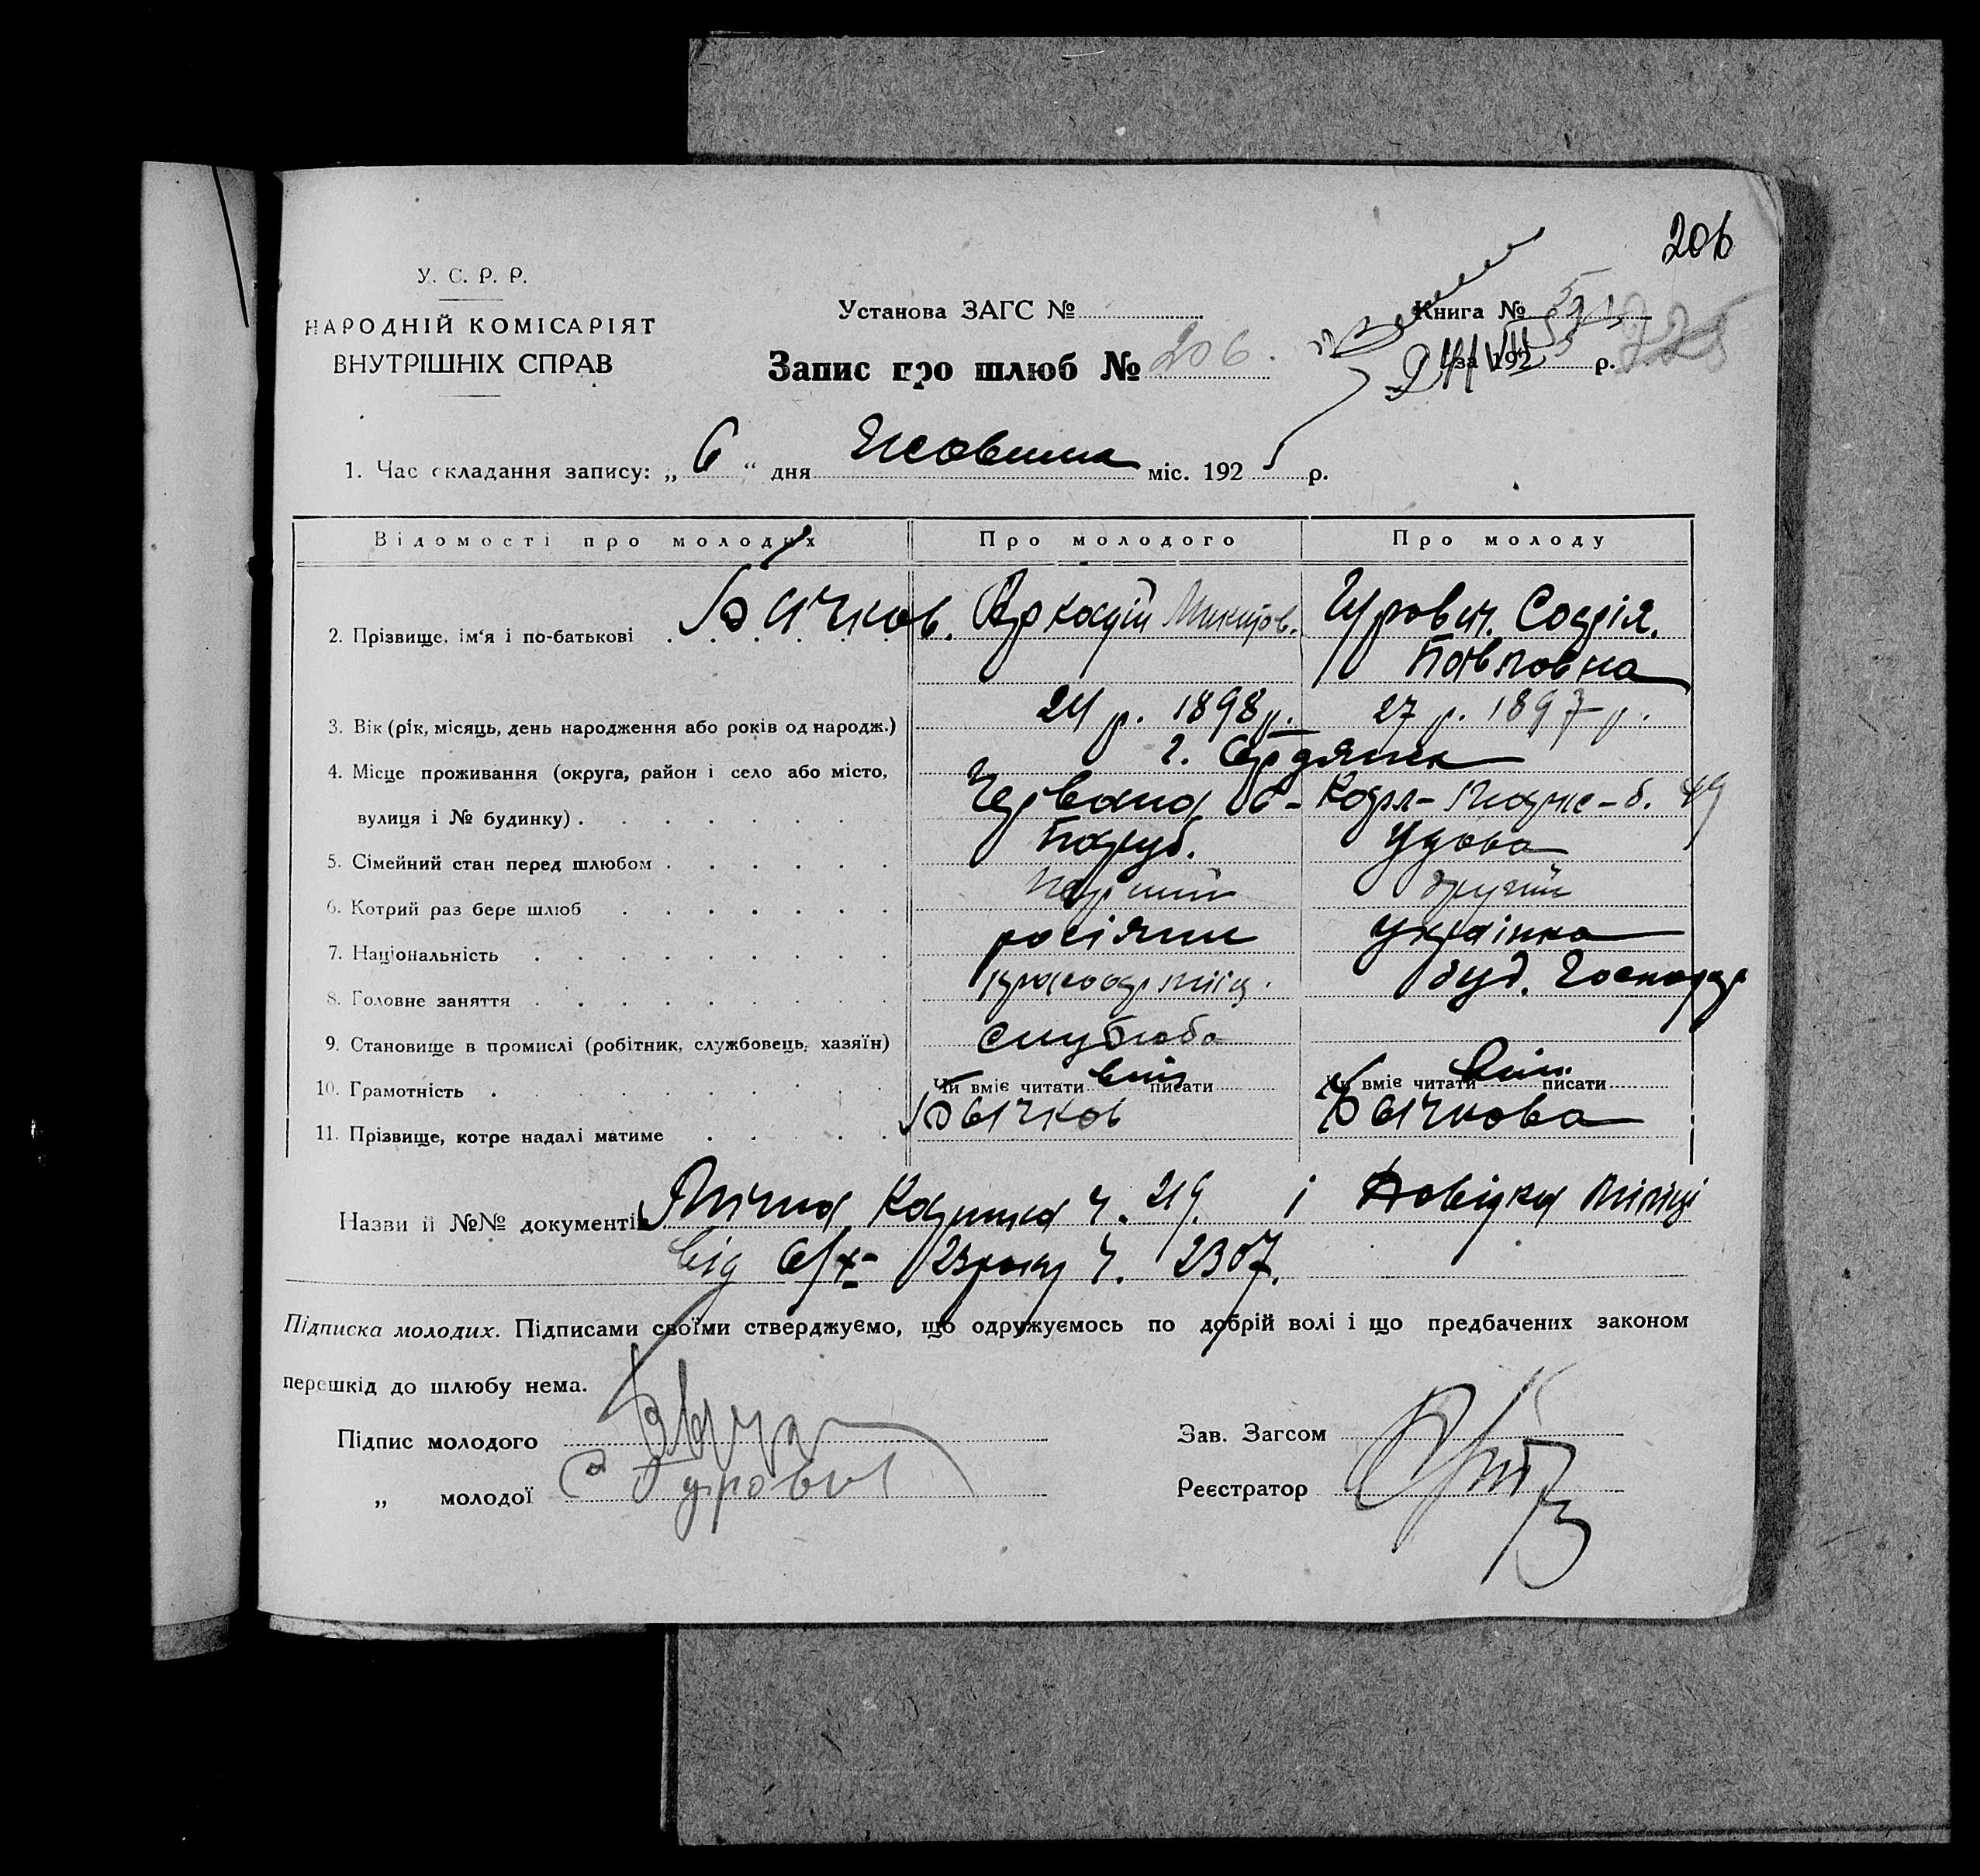 206
У. С. Р. Р.
НАРОДНІЙ КОМІСАРІЯТ
ВНУТРІШНІХ СПРАВ
Установа ЗАГС №
Книга №
Запис про шлюб № 206.
за 192 р.
1. Час складання запису: „ 6 “ дня Жовтня міс. 192 5 р.
Відомості про молодих Про молодого Про молоду
2. Прізвище, ім‘я і по-батькові Бичков. Аркадій Микитов. Гурович. Софія.
Павловна
3. Вік (рік, місяць, день народження або років од народж.) 24 р. 1898 р. 27 р. 1897 р.
4. Місце проживання (округа, район і село або місто,
вулиця і № будинку) Червона 6 - Карл- Лібкне - б. 49
5. Сімейний стан перед шлюбом Паруб. Удова
6. Котрий раз бере шлюб Перший другий
7. Національність росіянин Українка
8. Головне заняття красноармієц. буд. Господар
9. Становище в промислі (робітник, службовець, хазяїн) служба
10. Грамотність Чи вміє читати вміє писати Чи вміє читати вміє писати
11. Прізвище, котре надалі матиме Бычков Бычкова
Назви й №№ документів Лічна Картка ч. 219. і Довідка міліції
від 6/X- 23 року ч. 2307.
Підписка молодих. Підписами своїми стверджуємо, що одружуємось по добрій волі і що предбачених законом
перешкід до шлюбу нема.
Підпис молодого
Зав. Загсом
„ молодої С Гурович
Реєстратор